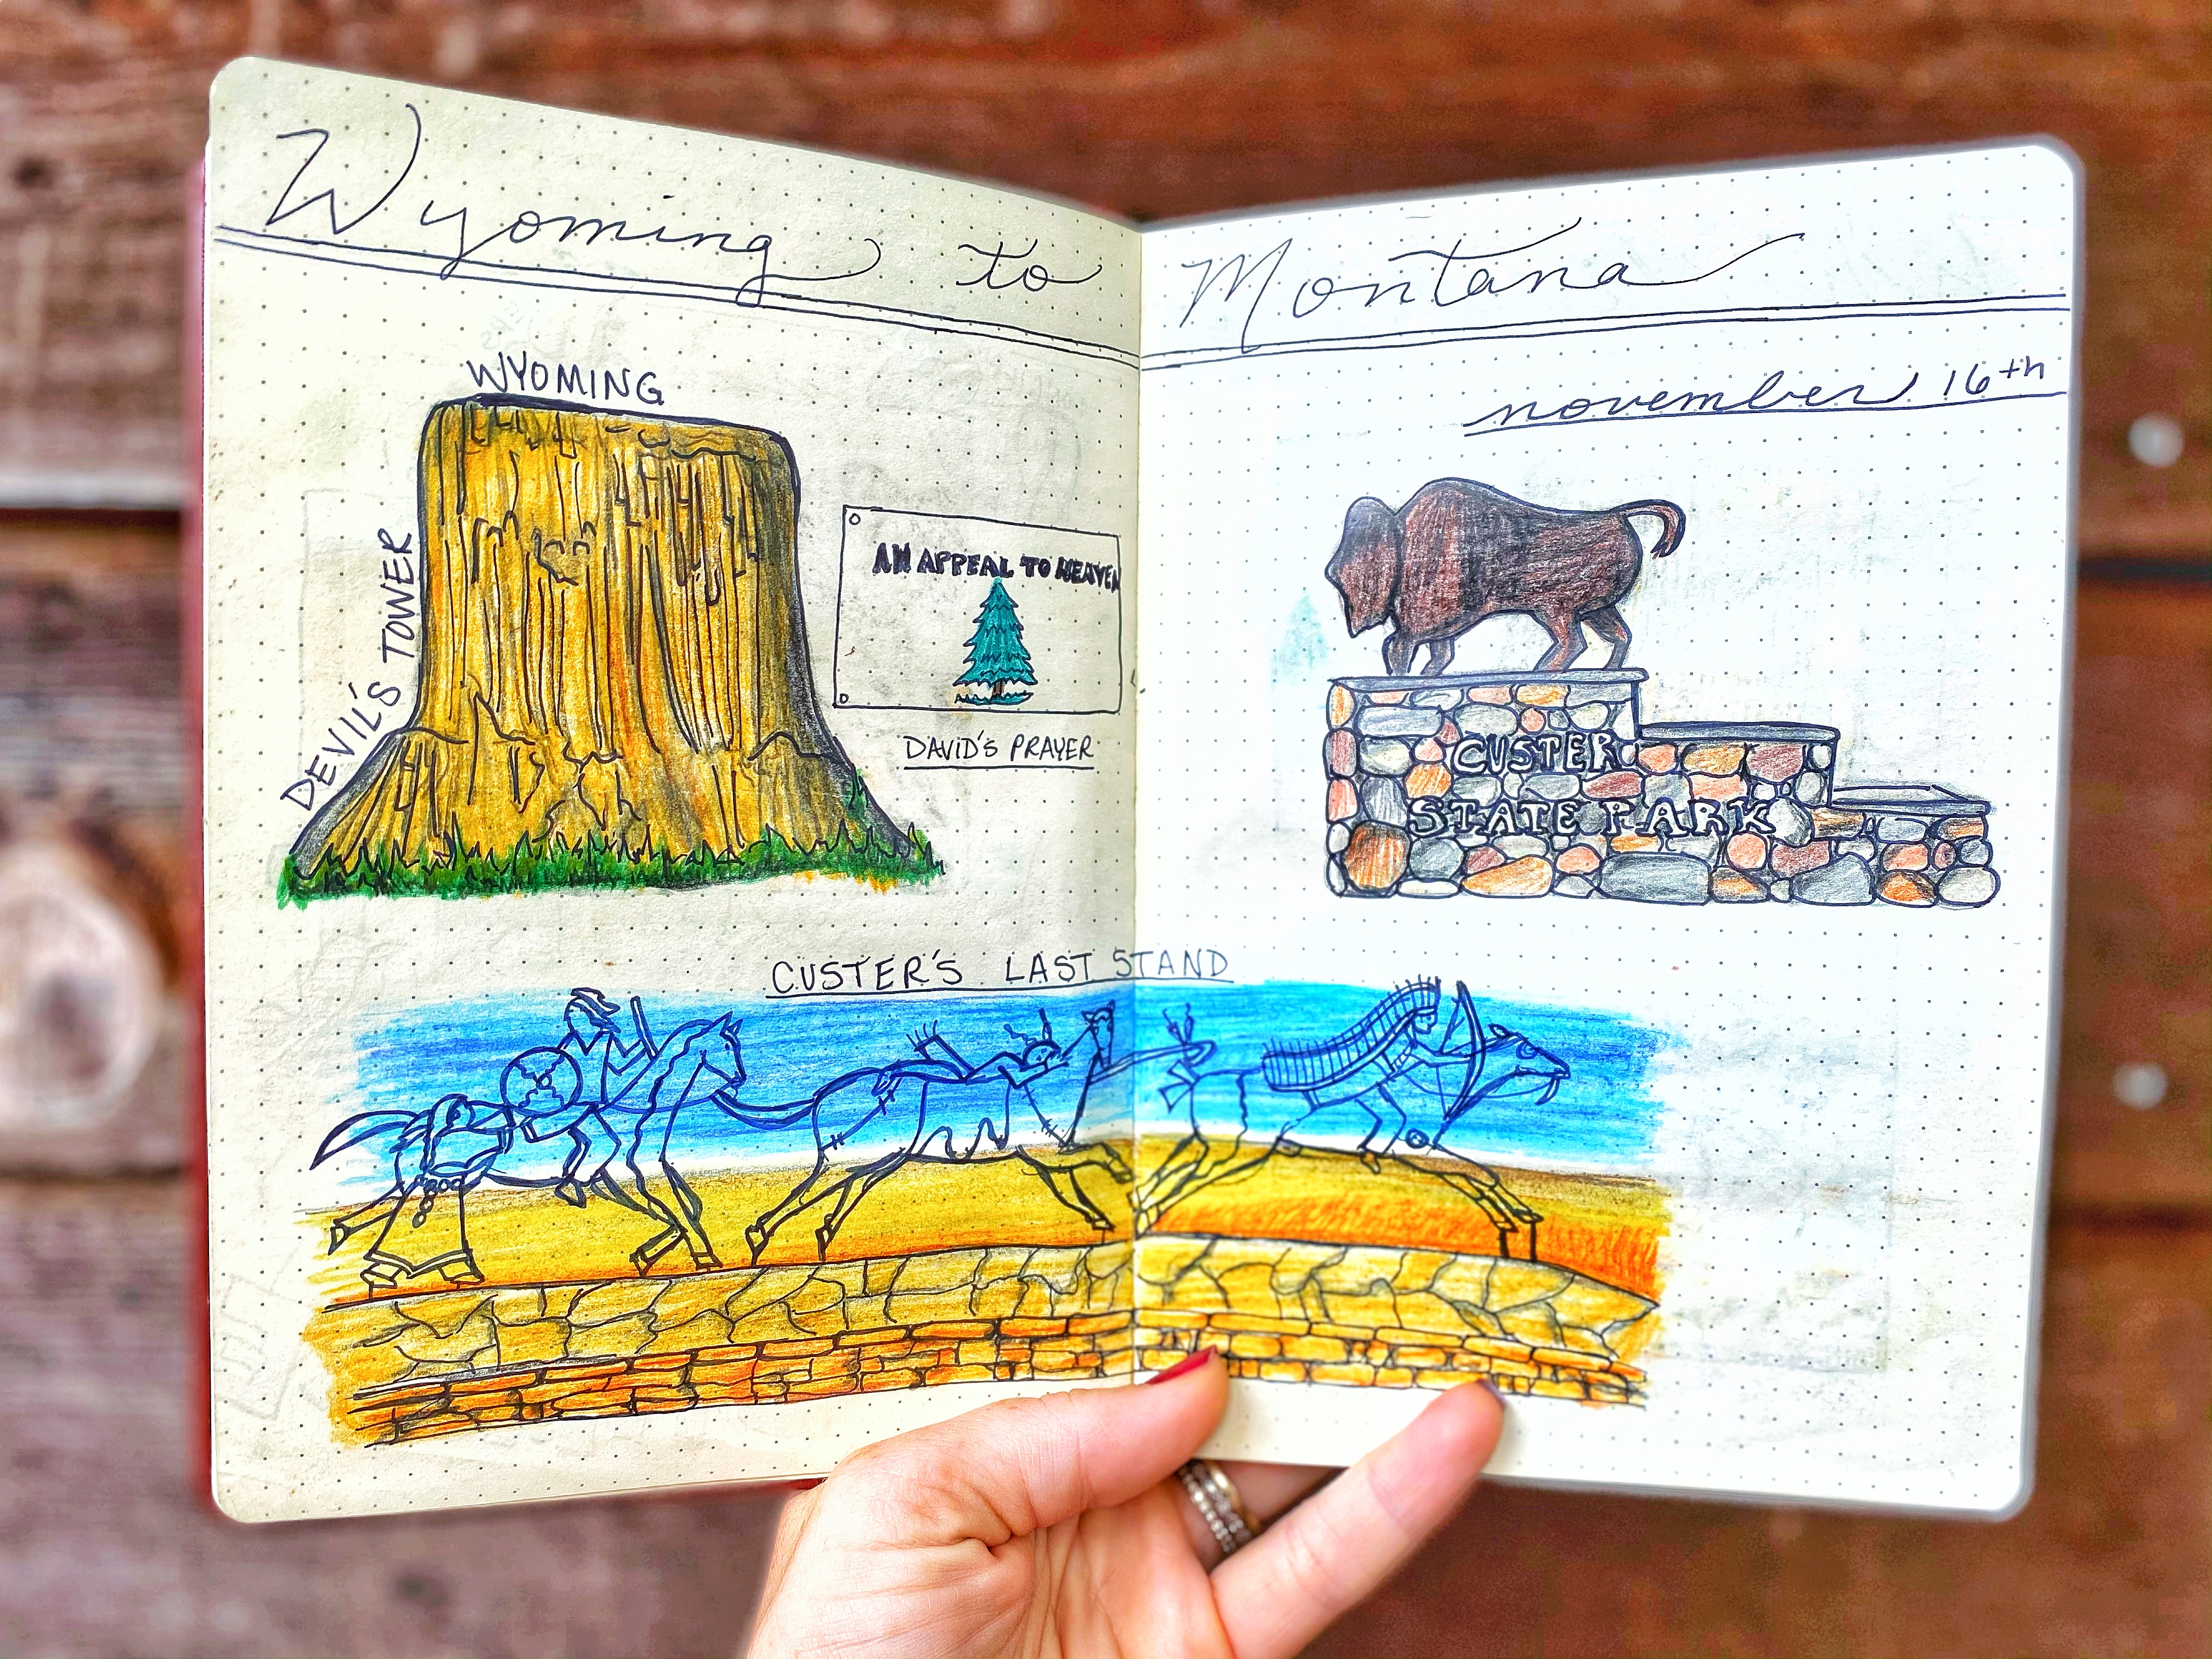 Wyoming to Montana
november 16th
WYOMING
DEVIL'S TOWER
AN APPEAL TO HEAVEN
DAVID'S PRAYER
CUSTER
STATE PARK
CUSTER'S LAST STAND